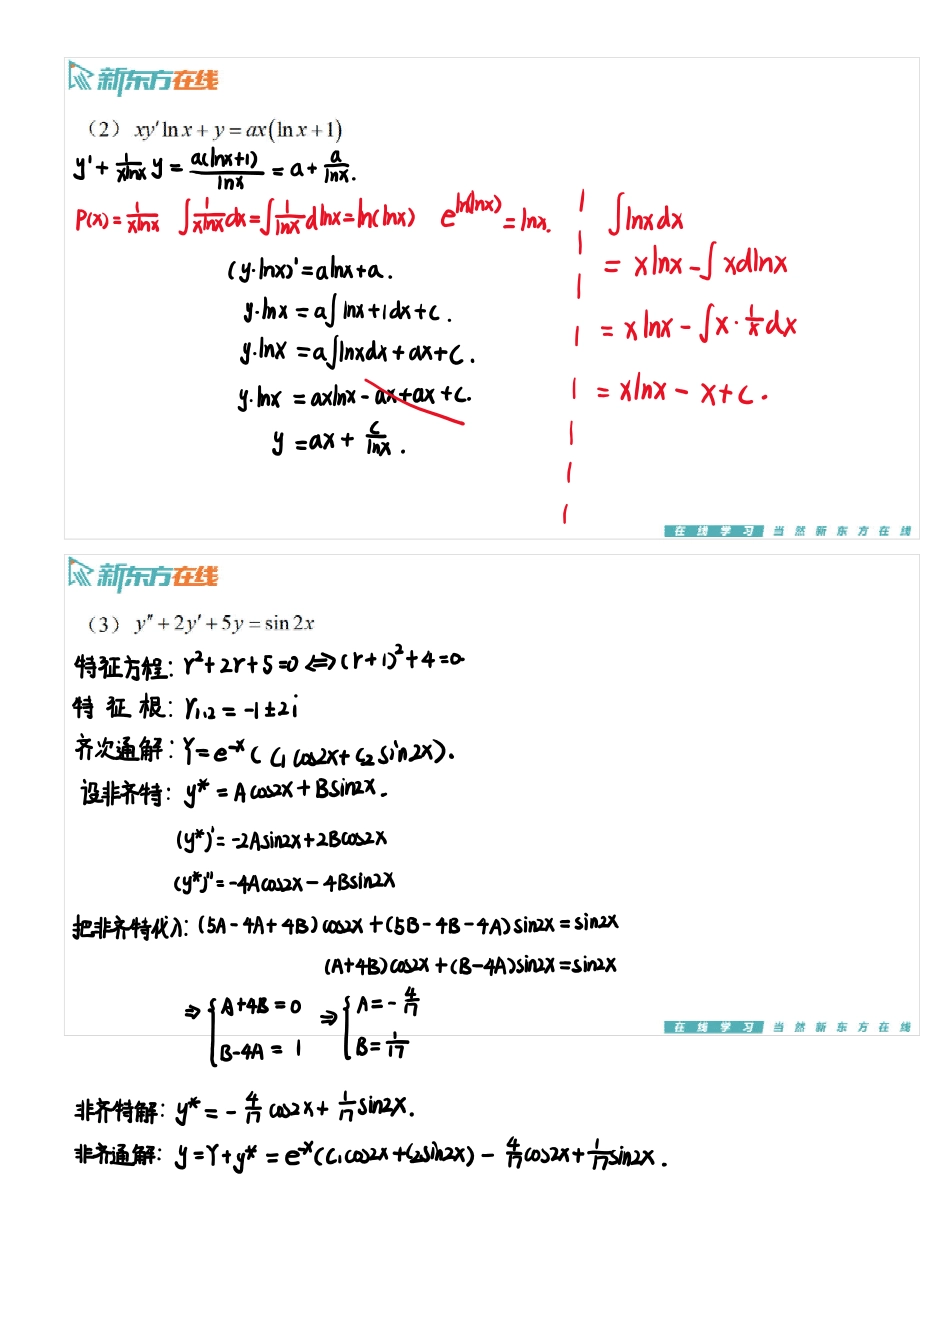 新东方在线
（2）xy′ln x + y = ax(ln x + 1)
y' + 1/(xlnx) y = a(lnx+1)/lnx = a + a/lnx.
P(x) = 1/(xlnx) ∫1/(xlnx) dx = ∫1/lnx dlnx = ln(lnx) e^{ln(lnx)} = lnx.
(y·lnx)' = alnx + a.
y·lnx = a∫lnx+1dx+c.
y·lnx = a∫lnxdx + ax + C.
y·lnx = axlnx - ax + ax + C.
y = ax + c/lnx.
∫lnxdx
= xlnx - ∫xdlnx
= xlnx - ∫x·1/x dx
= xlnx - x + c.
在线学习 当然新东方在线
新东方在线
（3）y″ + 2y′ + 5y = sin 2x
特征方程: r²+2r+5=0 ⇔ (r+1)²+4=0
特征根: r₁,₂ = -1±2i
齐次通解: Y = e^{-x}(C₁cos2x+C₂sin2x).
设非齐特: y* = Acos2x + Bsin2x.
(y*)' = -2Asin2x+2Bcos2x
(y*)'' = -4Acos2x - 4Bsin2x
把非齐特代入: (5A-4A+4B)cos2x+(5B-4B-4A)sin2x=sin2x
(A+4B)cos2x+(B-4A)sin2x=sin2x
⇒ { A+4B=0 ⇒ { A=-4/17
B-4A=1 B=1/17
在线学习 当然新东方在线
非齐特解: y* = -4/17 cos2x + 1/17 sin2x.
非齐通解: y=Y+y* = e^{-x}(C₁cos2x+C₂sin2x) - 4/17 cos2x + 1/17 sin2x.